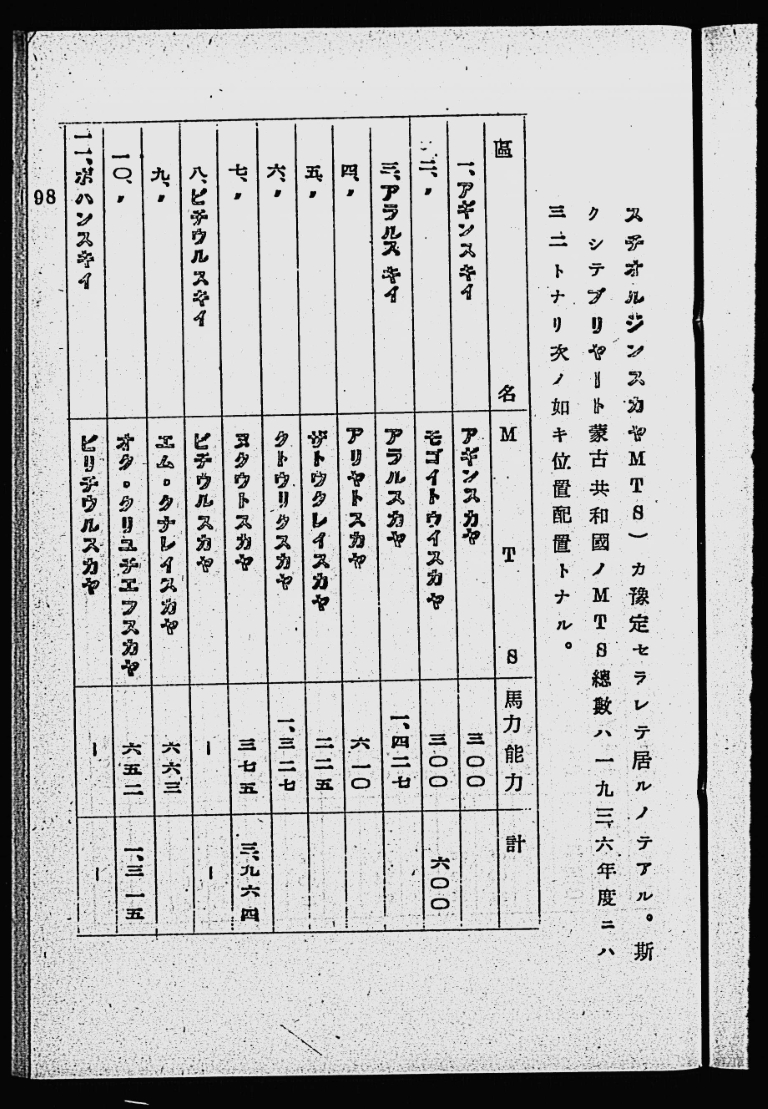 スチオルジンスカヤMTS）カ豫定セラレテ居ルノテアル。斯
クシテブリヤート蒙古共和國ノMTS總數ハ一九三六年度ニハ
三二トナリ次ノ如キ位置配置トナル。
區名 MTS 馬力能力 計
一、アギンスキイ アギンスカヤ 三〇〇
二、〃 モゴイトウイスカヤ 三〇〇 六〇〇
三、アラルスキイ アラルスカヤ 一、四二七
四、〃 アリヤトスカヤ 六一〇
五、〃 ザトウクレイスカヤ 二二五
六、〃 クトウリクスカヤ 一、三二七
七、〃 ヌクウトスカヤ 三七五 三、九六四
八、ビチウルスキイ ビチウルスカヤ ー ー
九、〃 エム・クナレイスカヤ 六六三
一〇、〃 オク・クリユチエフスカヤ 六五二 一、三一五
一一、ボハンスキイ ビリチウルスカヤ ー ー
98